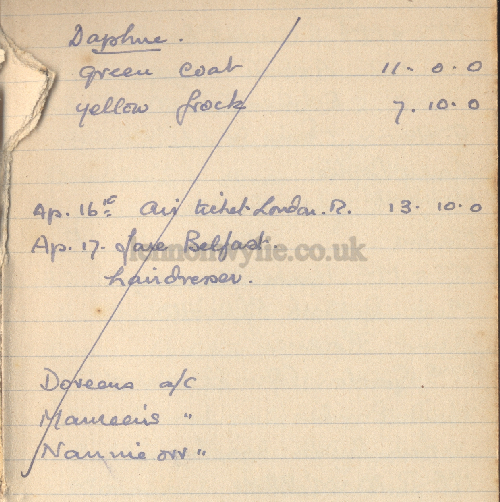 Daphne.
green coat 11. 0. 0
yellow frock 7. 10. 0
Ap. 16th Air ticket London. R. 13. 10. 0
Ap. 17. fare Belfast.
lennonwylie.co.uk
hairdresser.
Doreens a/c
Maureen's "
Nannie orr "